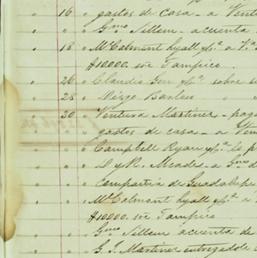 16 " gastos de casa - a Vent
" " Gmo Sillem - a cuenta
18 " McCalmont Lyall
$10000. s/e Tampico
26 " Claudio Gen sobre s
28 " Diego Barles
30 " Ventura Martinez - pag
" " gastos de casa - a Ven
" " Campbell Ryan le p
" " D y R. Meade - a Gmo d
" " Compañia de Guadalupe
" " McCalmont Lyall a
$10000. s/e Tampico
" " Gmo Sillem a cuenta de
" " G. J. Martinez entregadole